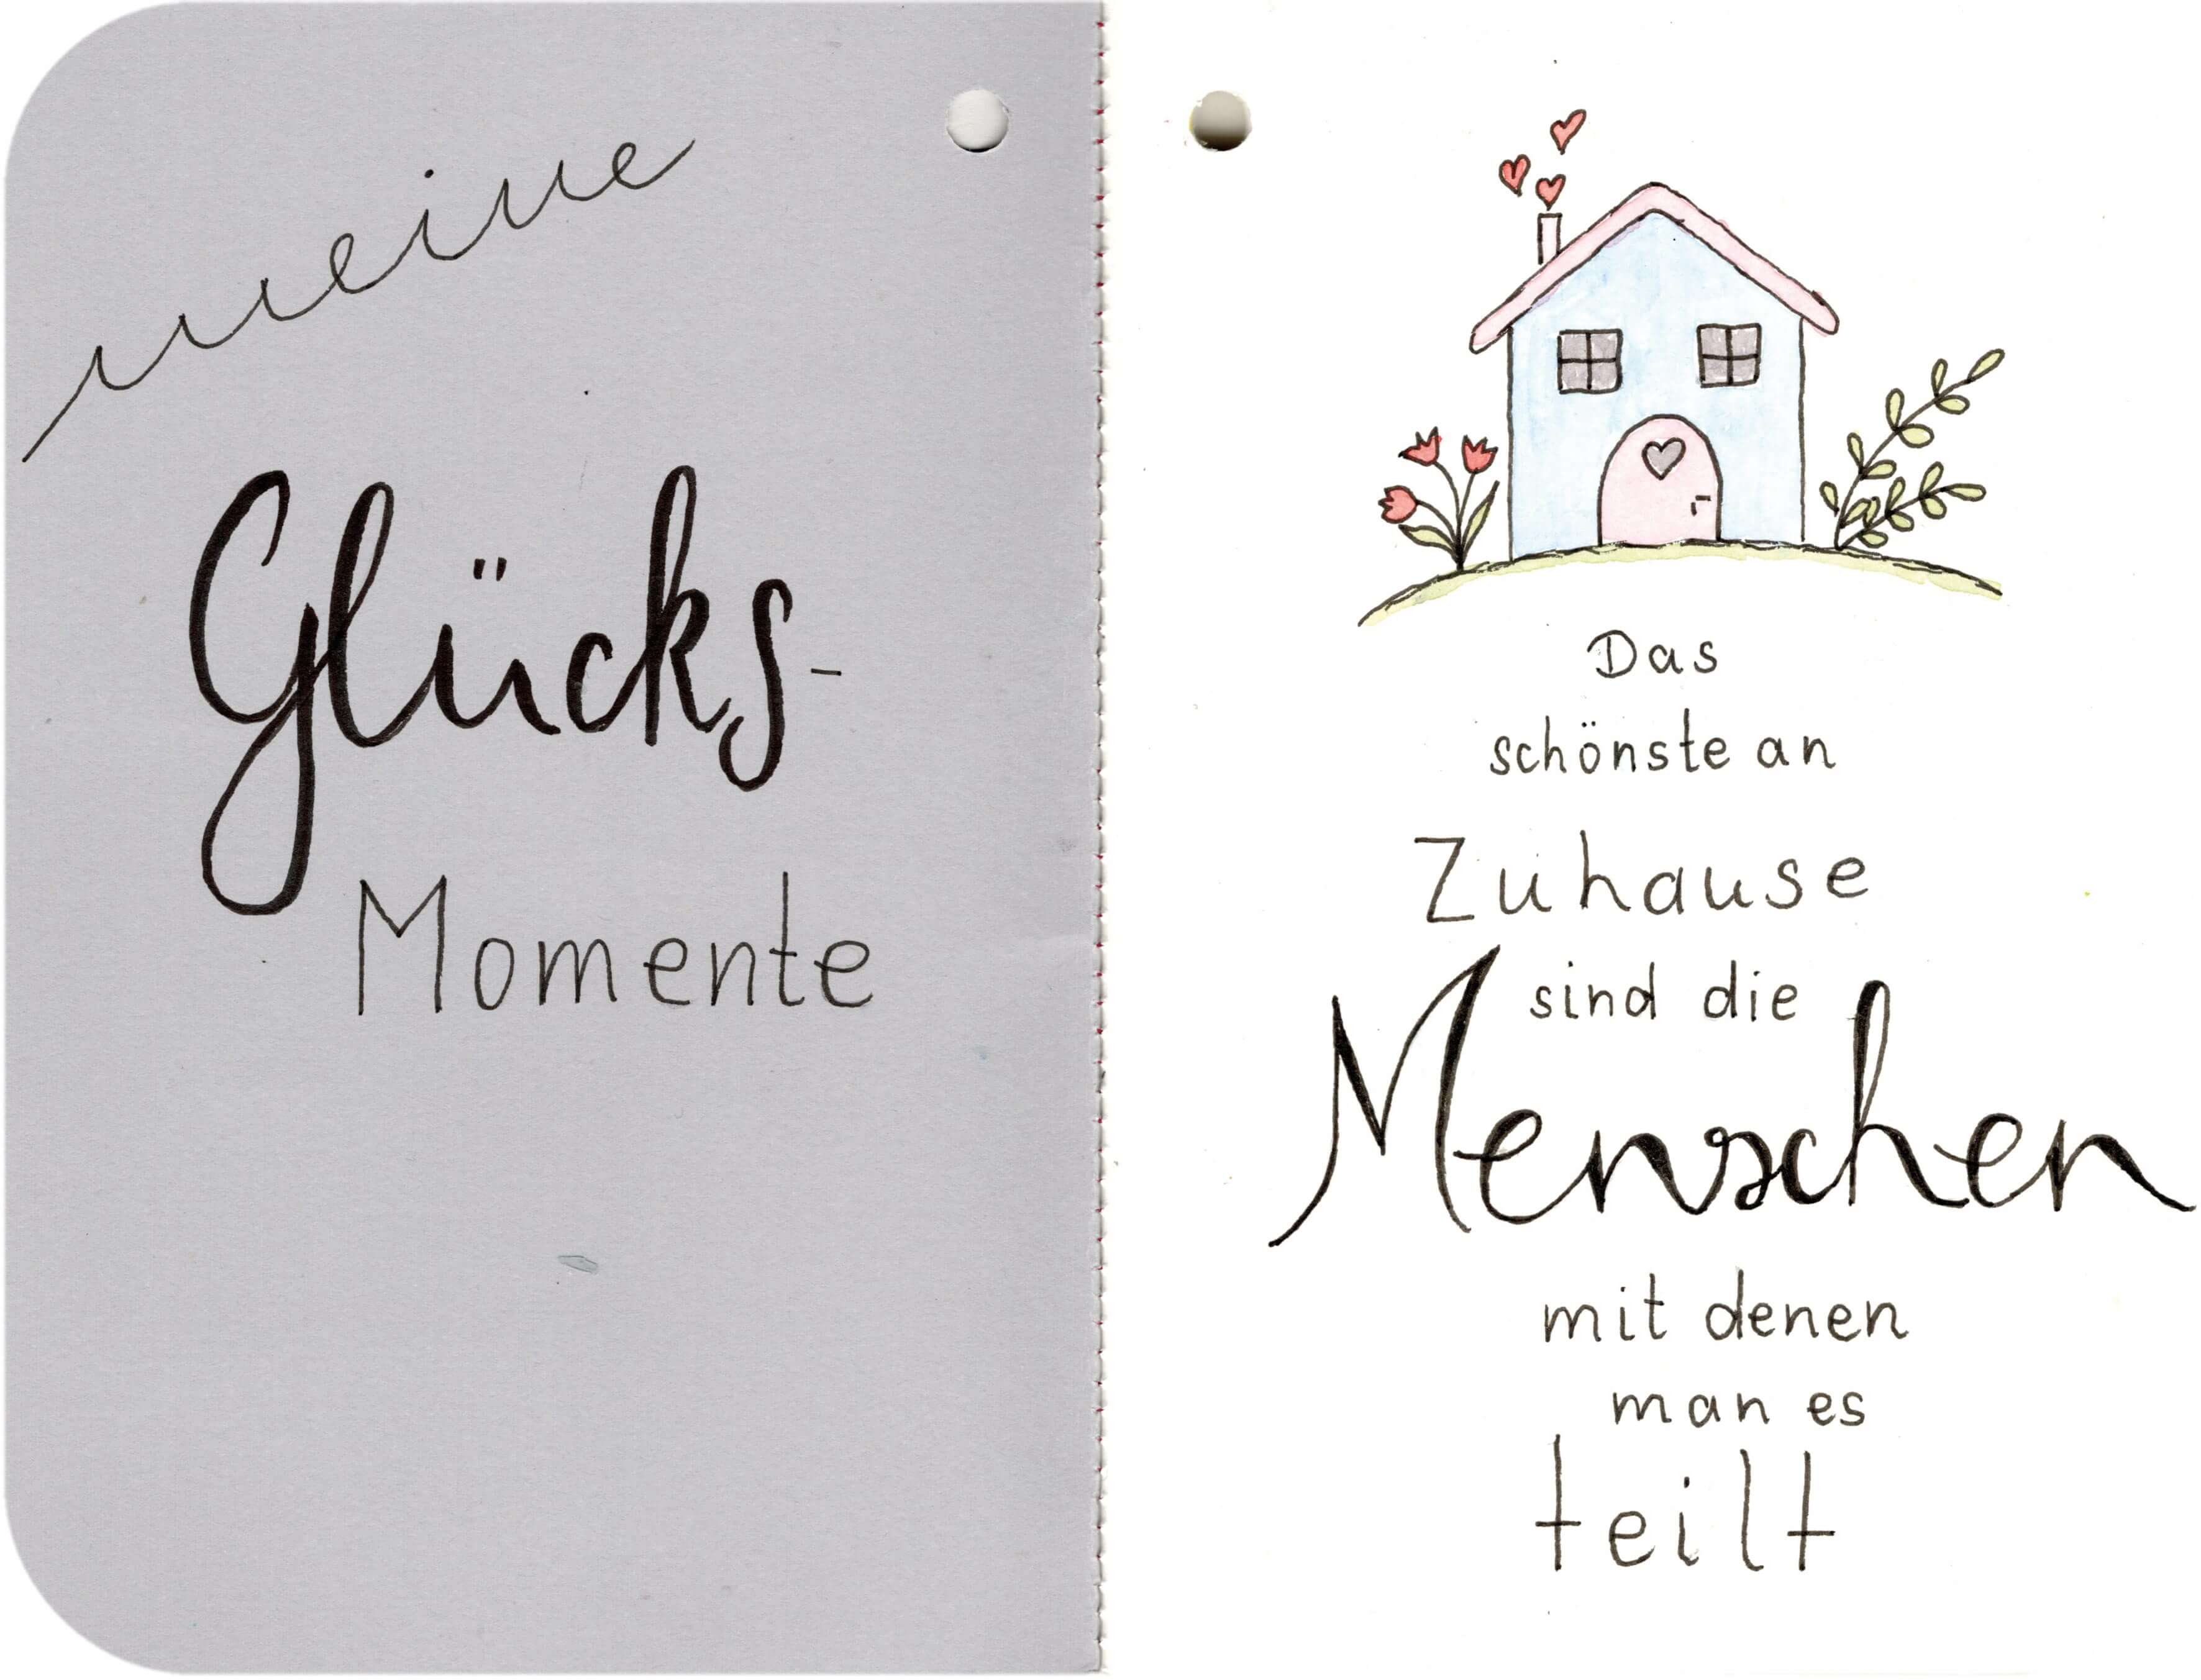 meine
Glücks-
Momente
Das
schönste an
Zuhause
sind die
Menschen
mit denen
man es
teilt